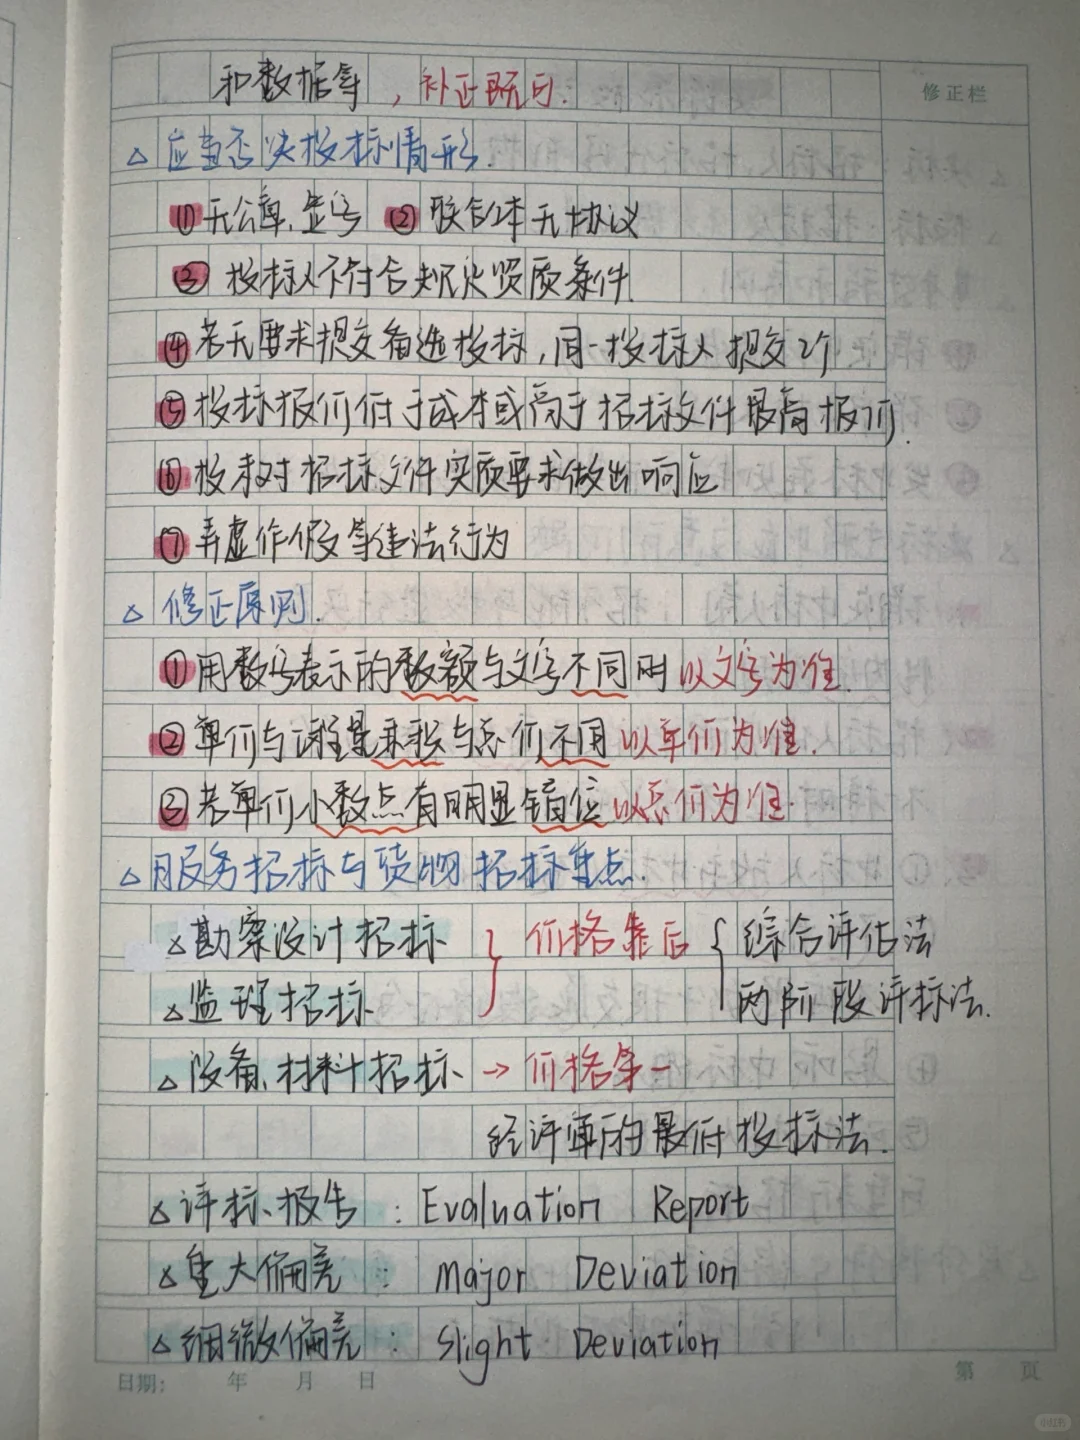 和数据等，补正既可.
修正栏
△ 应当否决投标情形.
① 无公章.签字 ② 联合体无协议
③ 投标人不符合规定资质条件
④ 若无要求提交备选投标,同一投标人提交2个
⑤ 投标报价低于成本或高于招标文件最高报价.
⑥ 投未对招标文件实质要求做出响应
⑦ 弄虚作假等违法行为
△ 修正原则.
① 用数字表示的数额与文字不同时 以文字为准.
② 单价与工程量乘积与总价不同 以单价为准.
③ 若单价小数点有明显错位 以总价为准.
△ 服务招标与货物招标重点.
△ 勘察设计招标 } 价格靠后 { 综合评估法
△ 监理招标 两阶段评标法.
△ 设备.材料招标 → 价格第一
经评审的最低投标法.
△ 评标报告 : Evaluation Report
△ 重大偏差 : Major Deviation
△ 细微偏差 : Slight Deviation
日期: 年 月 日 第 页
小红书